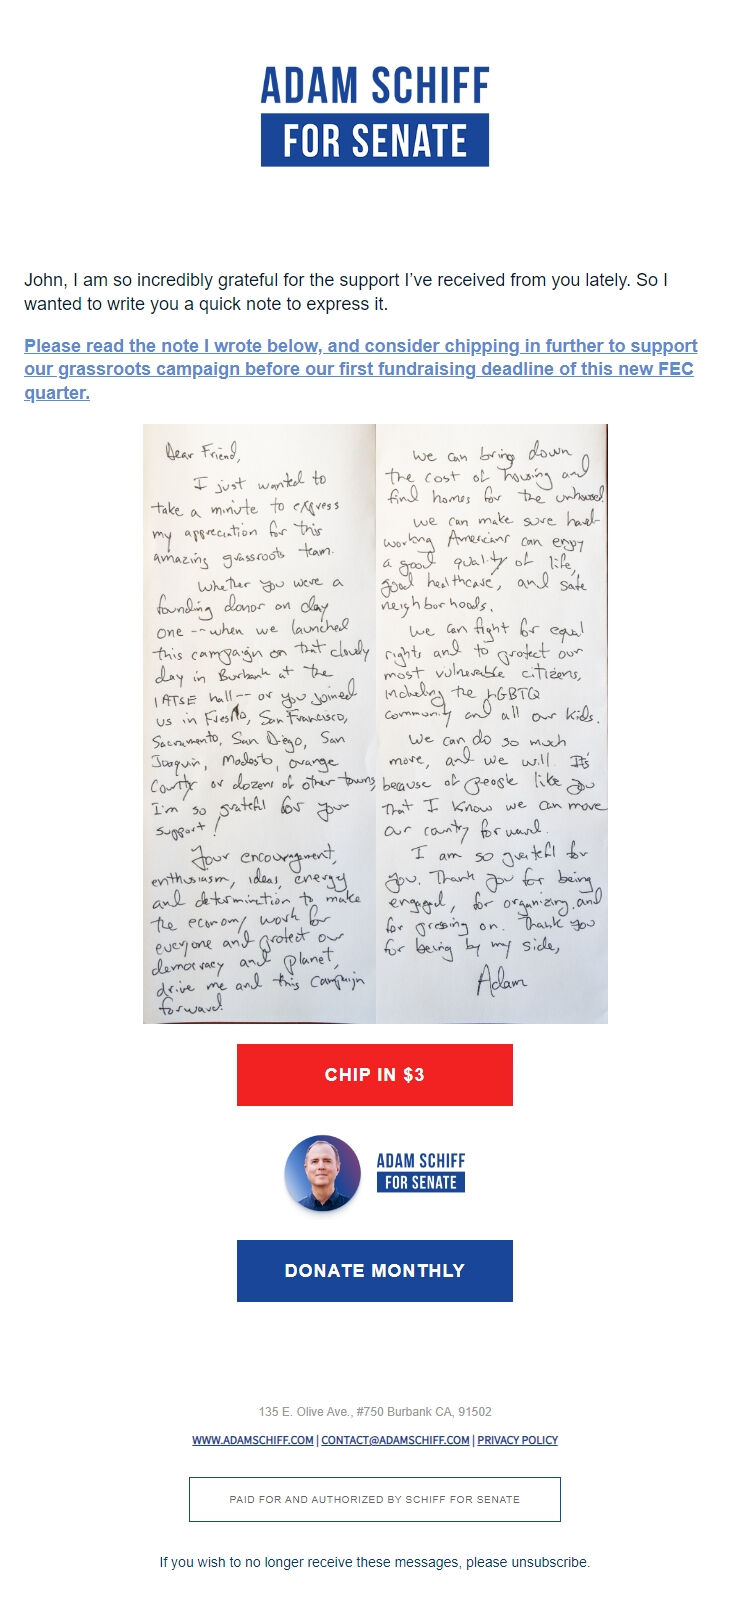 ADAM SCHIFF
FOR SENATE
John, I am so incredibly grateful for the support I’ve received from you lately. So I
wanted to write you a quick note to express it.
Please read the note I wrote below, and consider chipping in further to support
our grassroots campaign before our first fundraising deadline of this new FEC
quarter.
Dear Friend,
I just wanted to
take a minute to express
my appreciation for this
amazing grassroots team.
Whether you were a
founding donor on day
one -- when we launched
this campaign on that cloudy
day in Burbank at the
IATSE hall -- or you joined
us in Fresno, San Francisco,
Sacramento, San Diego, San
Joaquin, Modesto, Orange
County or dozens of other towns,
I'm so grateful for your
support!
Your encouragement,
enthusiasm, ideas, energy
and determination to make
the economy work for
everyone and protect our
democracy and planet,
drive me and this campaign
forward.
We can bring down
the cost of housing and
find homes for the unhoused.
We can make sure hard-
working Americans can enjoy
a good quality of life,
good healthcare, and safe
neighborhoods.
We can fight for equal
rights and to protect our
most vulnerable citizens,
including the LGBTQ
community and all our kids.
We can do so much
more, and we will. It's
because of people like you
that I know we can move
our country forward.
I am so grateful for
you. Thank you for being
engaged, for organizing, and
for pressing on. Thank you
for being by my side,
Adam
CHIP IN $3
ADAM SCHIFF
FOR SENATE
DONATE MONTHLY
135 E. Olive Ave., #750 Burbank CA, 91502
WWW.ADAMSCHIFF.COM | CONTACT@ADAMSCHIFF.COM | PRIVACY POLICY
PAID FOR AND AUTHORIZED BY SCHIFF FOR SENATE
If you wish to no longer receive these messages, please unsubscribe.